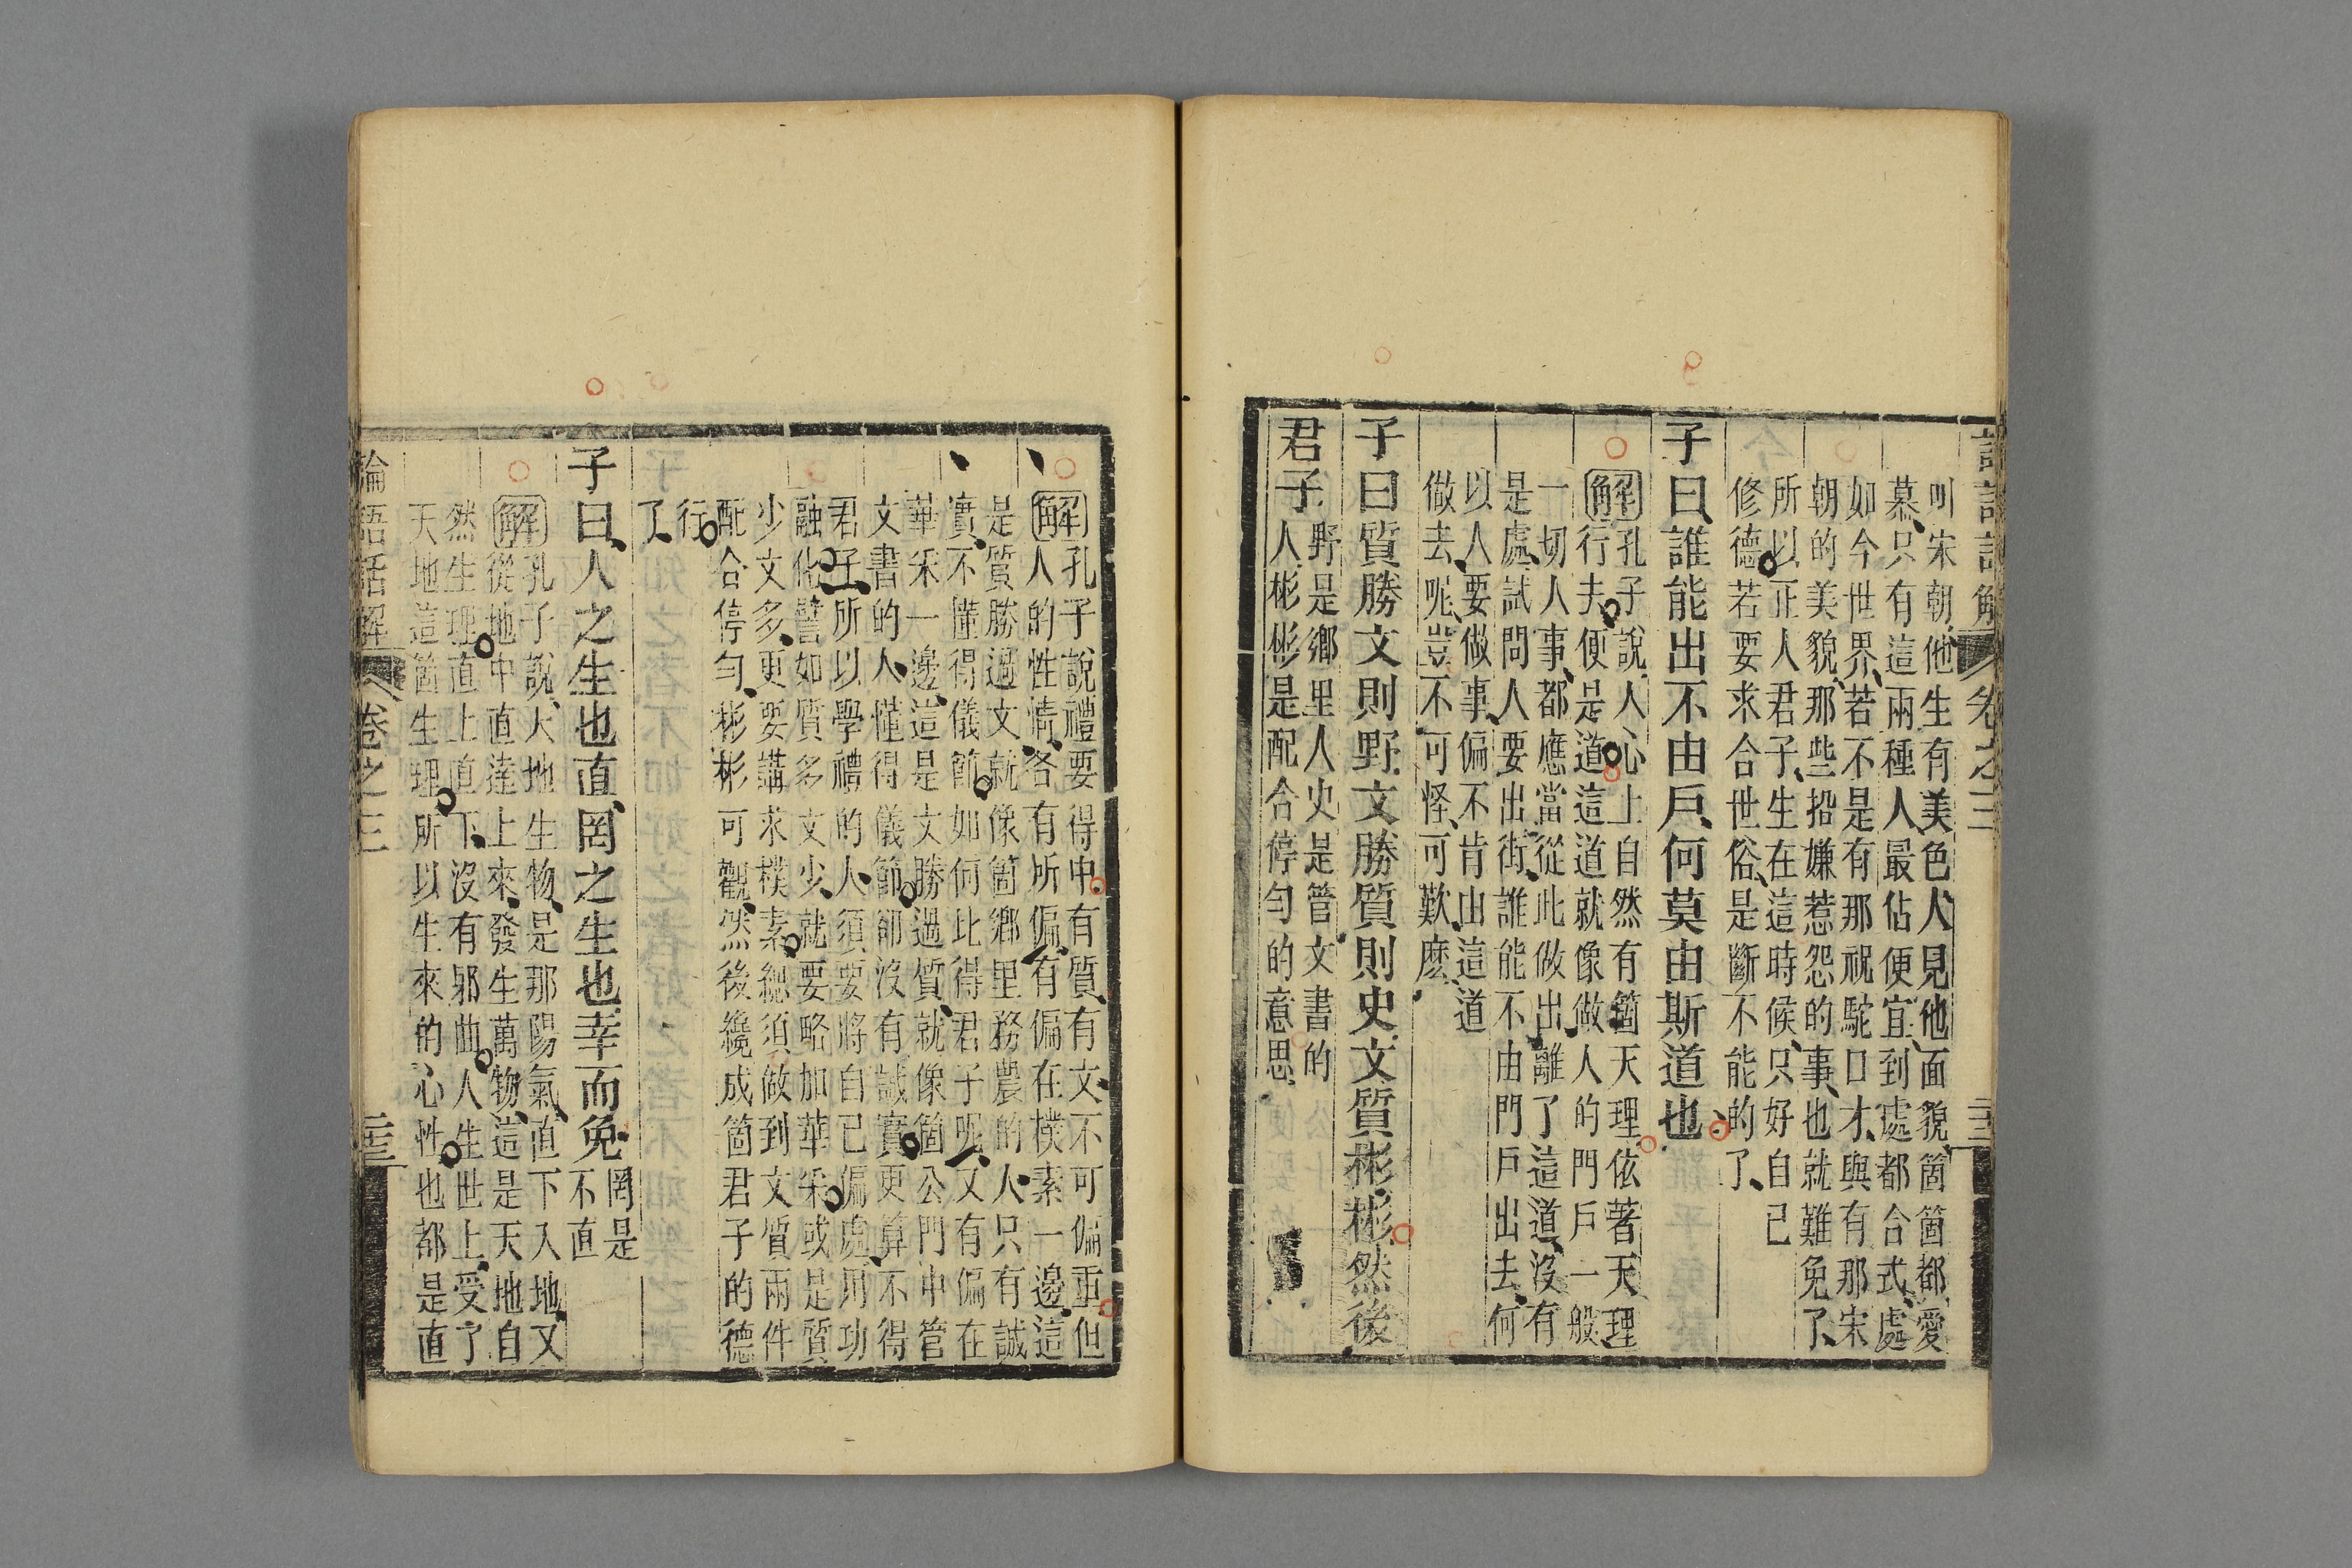 叫宋朝他生有美色人見他面貌箇箇都愛
慕只有這兩種人最佔便宜到處都合式處
如今世界若不是有那祝鮀口才與有那宋
朝的美貌那些招嫌惹怨的事也就難免了
所以正人君子生在這時候只好自己
修德若要求合世俗是斷不能的了
子曰誰能出不由戶何莫由斯道也
解孔子說人心上自然有箇天理依著天理
行去便是道這道就像做人的門戶一般
一切人事都應當從此做出離了這道沒有
是處試問人要出街誰能不由門戶出去何
以人要做事偏不肯由這道
做去呢豈不可怪可歎麽
子曰質勝文則野文勝質則史文質彬彬然後
君子
野是鄉里人史是管文書的
人彬彬是配合停勻的意思
解孔子說禮要得中有質有文不可偏重但
人的性情各有所偏有偏在樸素一邊這
是質勝過文就像箇鄉里務農的人只有誠
實不懂得儀節如何比得君子呢又有偏在
華采一邊這是文勝過質就像箇公門中管
文書的人僅得儀節卻沒有誠實更算不得
君子所以學禮的人須要將自己偏處用功
融化譬如質多文少就要略加華采或是質
少文多更要講求樸素總須做到文質兩件
配合停勻彬彬可觀然後纔成箇君子的德
行
了
子曰人之生也直罔之生也幸而免
罔是
不直
解孔子說天地生物是那陽氣直下入地又
從地中直達上來發生萬物這是天地自
然生理直上直下沒有邪曲人生世上受了
天地這箇生理所以生來的心性也都是直
論語話解 卷之三 二十三